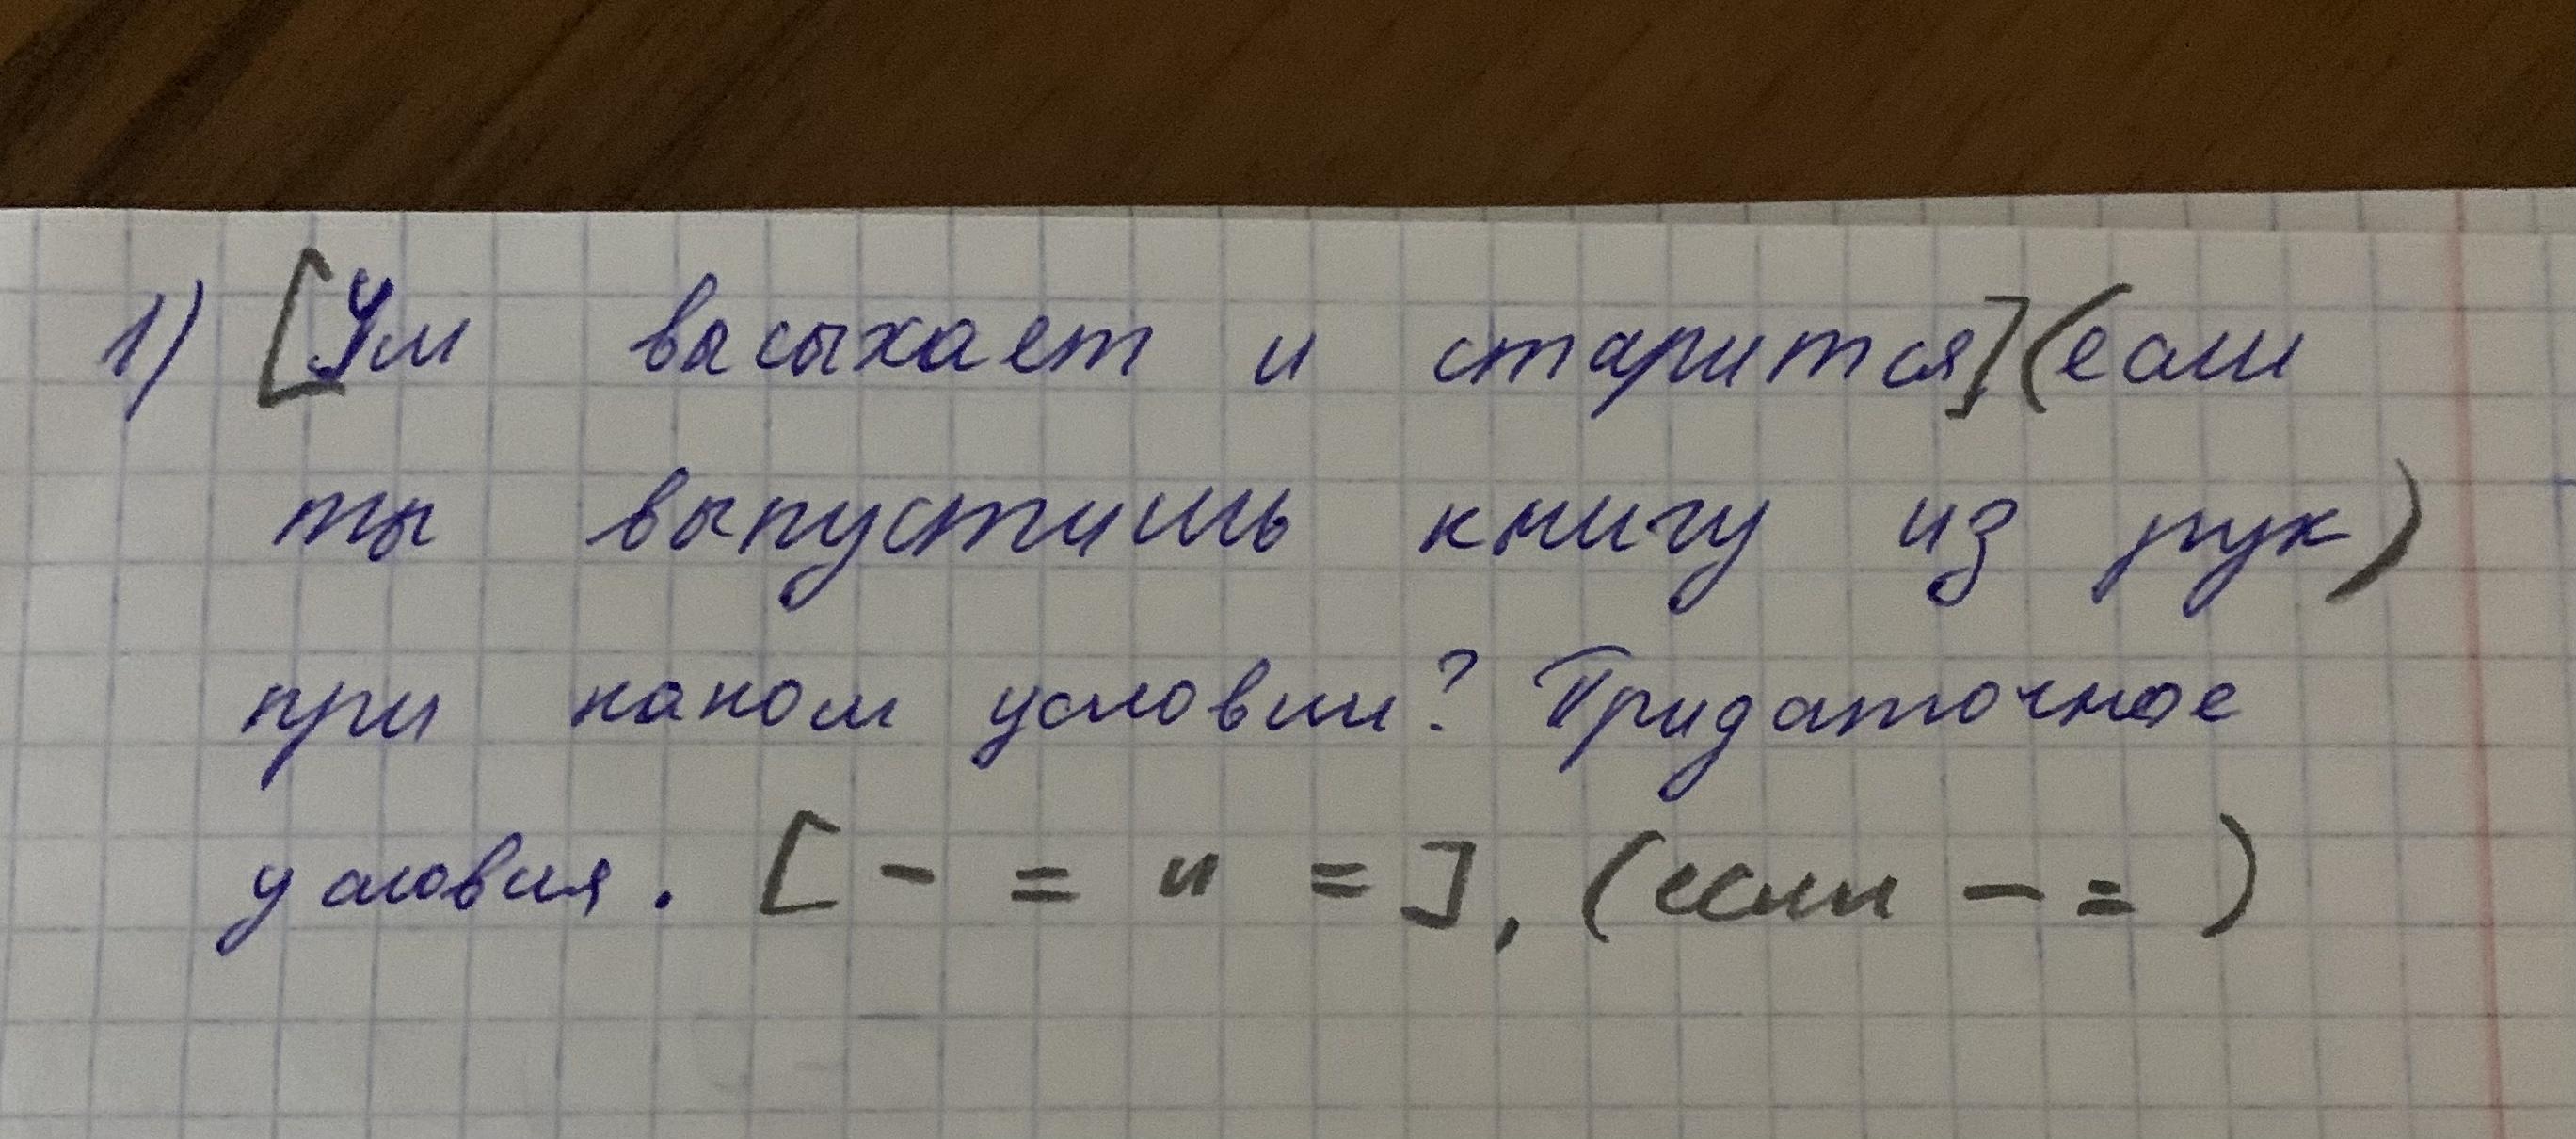 1) [Ум высыхает и старится](если
ты выпустишь книгу из рук)
при каком условии? Придаточное
условия. [ - = и = ], (если - = )